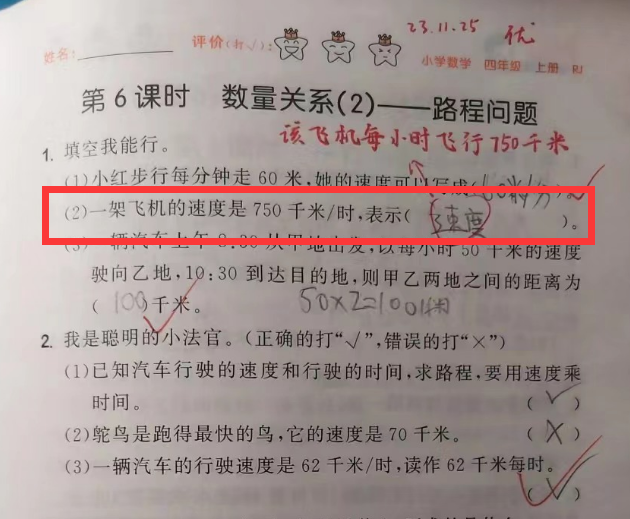 23.11.25 优
姓名: 评价(打√):
小学数学 四年级 上册 RJ
第6课时 数量关系(2)——路程问题
该飞机每小时飞行750千米
1. 填空我能行。
(1)小红步行每分钟走60米,她的速度可以写成(60米/分)
(2)一架飞机的速度是750千米/时,表示( 速度 )。
(3)一辆汽车上午8:30从甲地出发,以每小时50千米的速度
驶向乙地,10:30到达目的地,则甲乙两地之间的距离为
( 100 )千米。 50×2=100
2. 我是聪明的小法官。(正确的打“√”,错误的打“×”)
(1)已知汽车行驶的速度和行驶的时间,求路程,要用速度乘
时间。 ( √ )
(2)鸵鸟是跑得最快的鸟,它的速度是70千米。 ( X )
(3)一辆汽车的行驶速度是62千米/时,读作62千米每时。
( √ )